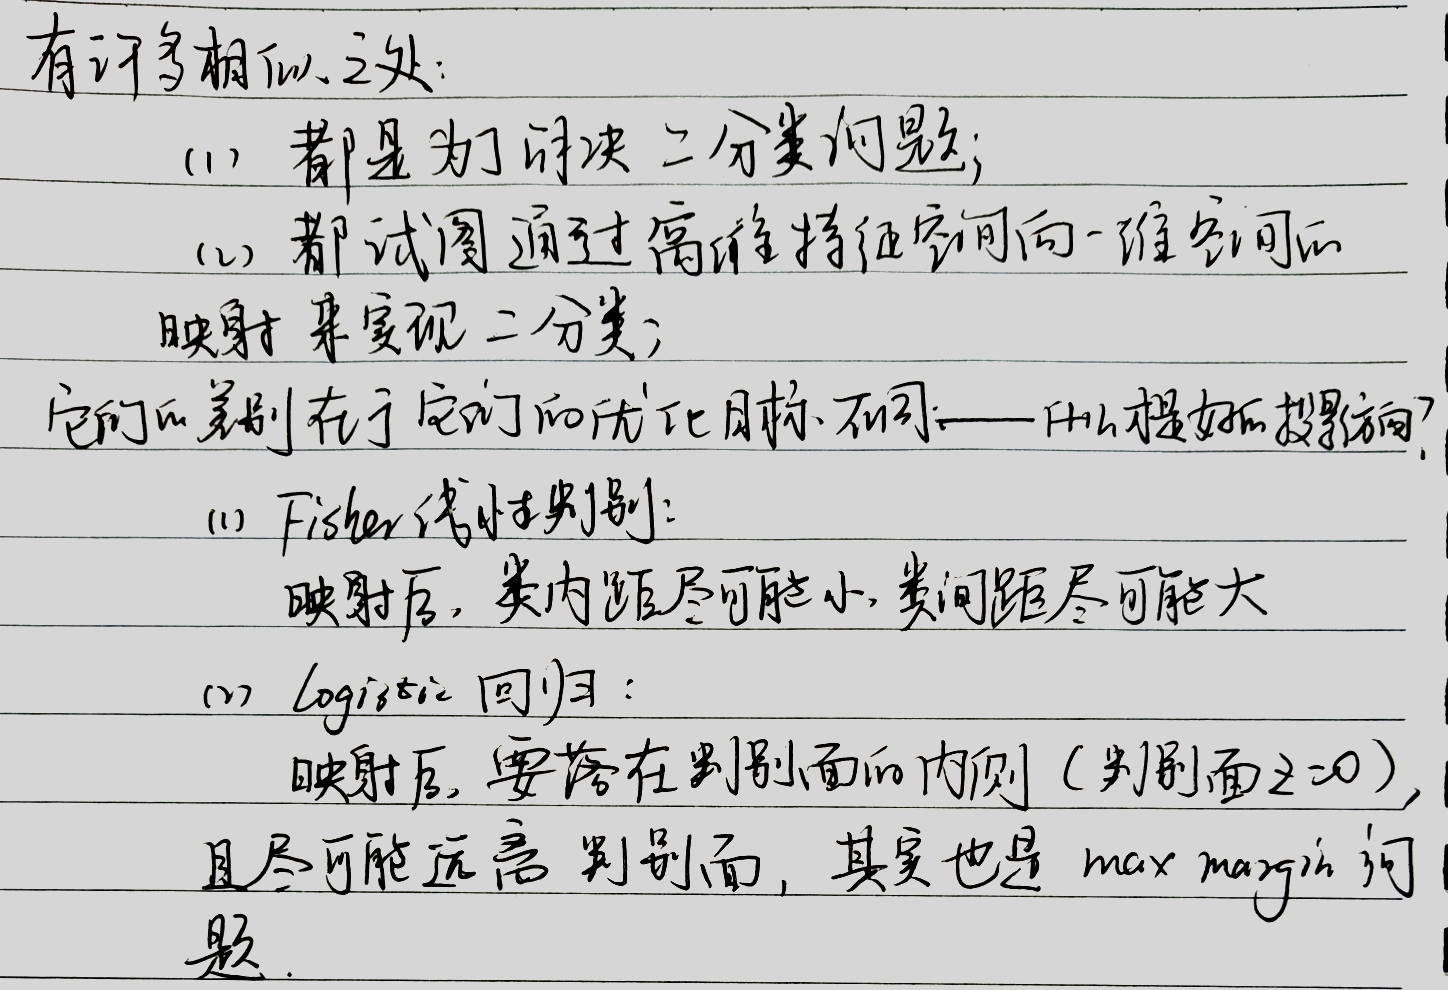 有许多相似之处:
(1) 都是为了解决二分类问题;
(2) 都试图通过高维特征空间向一维空间的
映射来实现二分类;
它们的差别在于它们的优化目标不同:——什么才是好的投影方向?
(1) Fisher线性判别:
映射后, 类内距尽可能小, 类间距尽可能大
(2) Logistic 回归:
映射后, 要落在判别面的内侧 (判别面z=0),
且尽可能远离判别面, 其实也是 max margin 问
题.